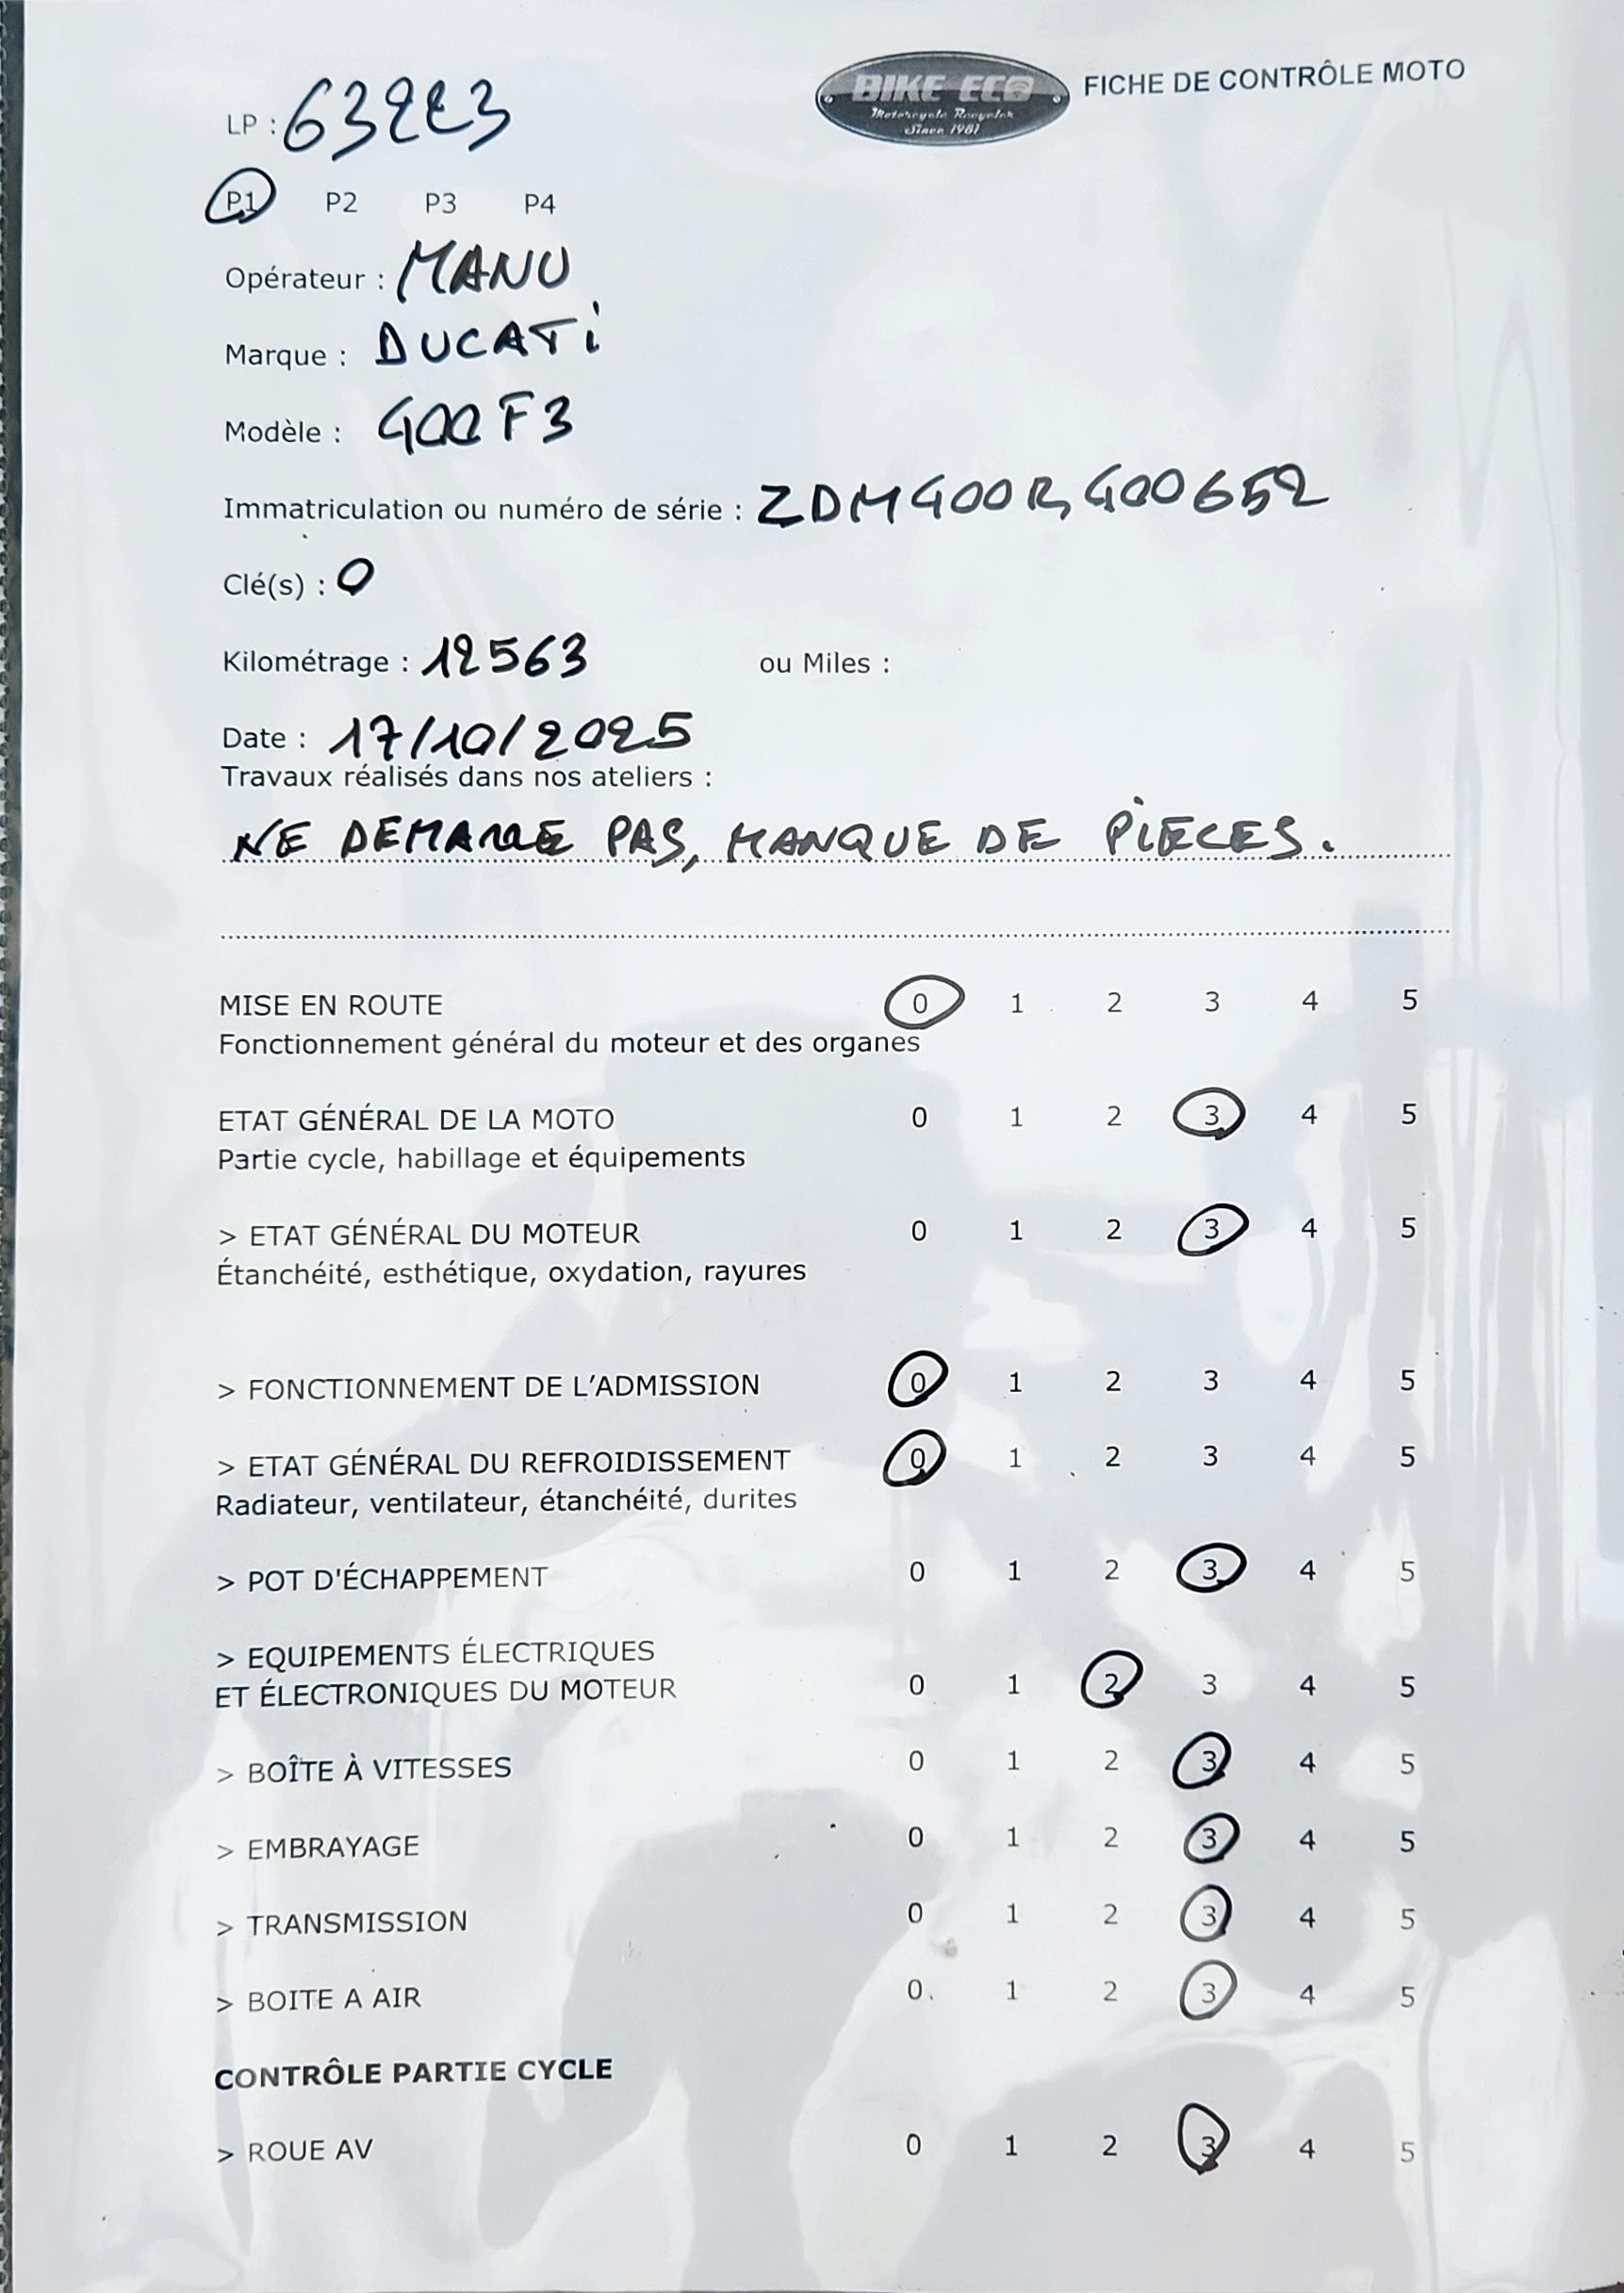 LP : 63223
BIKE ECO
Motorcycle Recycler
Since 1981
FICHE DE CONTRÔLE MOTO
P1 P2 P3 P4
Opérateur : MANU
Marque : DUCATi
Modèle : 400 F3
Immatriculation ou numéro de série : ZDM400R400652
Clé(s) : 0
Kilométrage : 12563 ou Miles :
Date : 17/10/2025
Travaux réalisés dans nos ateliers :
NE DEMARRE PAS, MANQUE DE PIECES.
MISE EN ROUTE 0 1 2 3 4 5
Fonctionnement général du moteur et des organes
ETAT GÉNÉRAL DE LA MOTO 0 1 2 3 4 5
Partie cycle, habillage et équipements
> ETAT GÉNÉRAL DU MOTEUR 0 1 2 3 4 5
Étanchéité, esthétique, oxydation, rayures
> FONCTIONNEMENT DE L’ADMISSION 0 1 2 3 4 5
> ETAT GÉNÉRAL DU REFROIDISSEMENT 0 1 2 3 4 5
Radiateur, ventilateur, étanchéité, durites
> POT D'ÉCHAPPEMENT 0 1 2 3 4 5
> EQUIPEMENTS ÉLECTRIQUES
ET ÉLECTRONIQUES DU MOTEUR 0 1 2 3 4 5
> BOÎTE À VITESSES 0 1 2 3 4 5
> EMBRAYAGE 0 1 2 3 4 5
> TRANSMISSION 0 1 2 3 4 5
> BOITE A AIR 0 1 2 3 4 5
CONTRÔLE PARTIE CYCLE
> ROUE AV 0 1 2 3 4 5